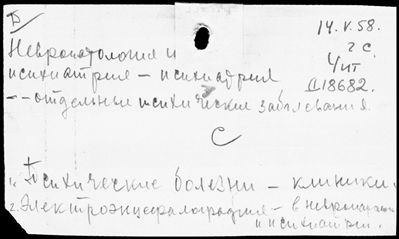 Б
14.V.58.
2 с.
Чит
Д18682.
Невропатология и
психиатрия – психиатрия
– – отдельные психические заболевания.
С
1. Психические болезни – клиники.
2. Электроэнцефалография – в невропатол.
и психиатрии.